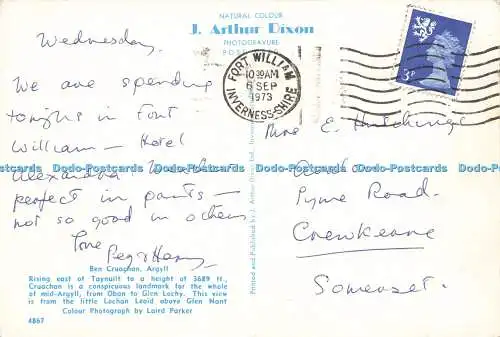 NATURAL COLOUR
J. Arthur Dixon
PHOTOGRAVURE
POSTCARD
Wednesday.
We are spending
tonight in Fort
William – Hotel
Alexandra Weather
perfect in parts –
not so good in others
love
Peg & Harry
Ben Cruachan, Argyll
Rising east of Taynuilt to a height of 3689 ft.,
Cruachan is a conspicuous landmark for the whole
of mid-Argyll, from Oban to Glen Lochy. This view
is from the little Lochan Leoid above Glen Nant
Colour Photograph by Laird Parker
4867
Printed & Published by J. Arthur Dixon Ltd.
FORT WILLIAM
10 30AM
6 SEP
1973
INVERNESS-SHIRE
3P
E. Hutchings
Pyne Road.
Crewkerne
Somerset.
Dodo-Postcards Dodo-Postcards Dodo-Postcards Dodo-Postcards Dodo-Postcards